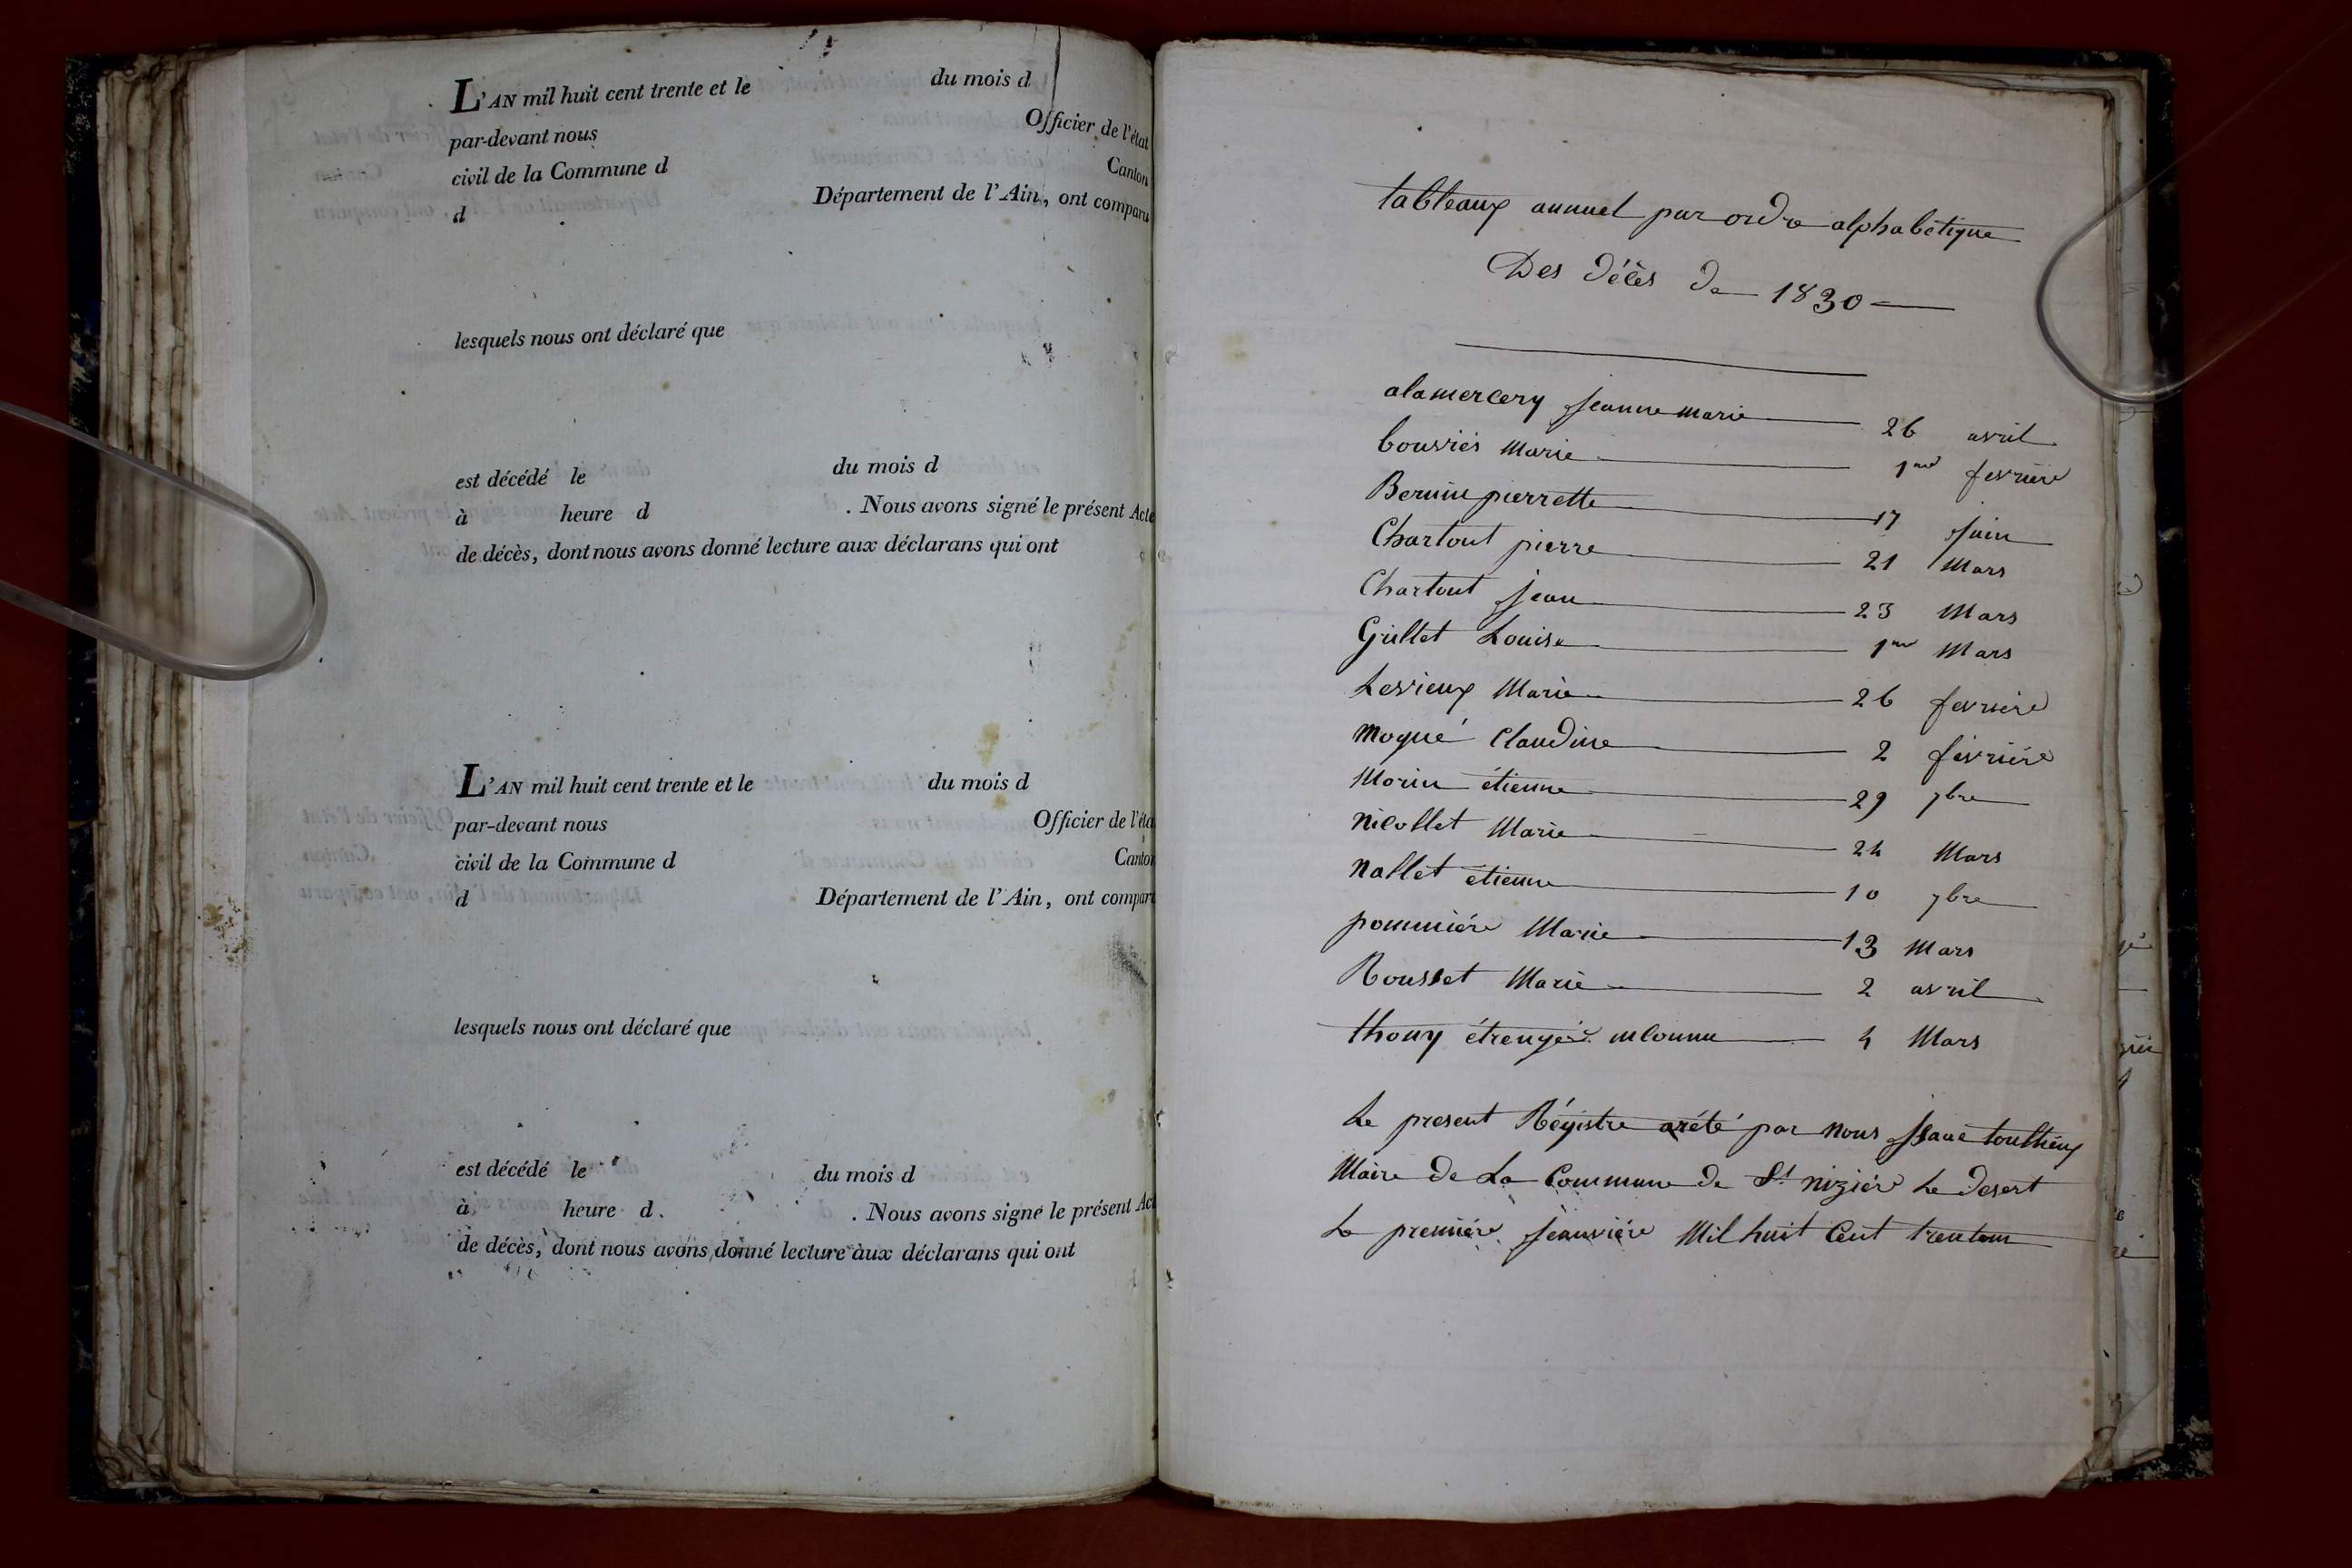 L'AN mil huit cent trente et le du mois d
par-devant nous Officier de l'état
civil de la Commune d Canton
d Département de l'Ain, ont comparu
lesquels nous ont déclaré que
est décédé le du mois d
à heure d . Nous avons signé le présent Acte
de décès, dont nous avons donné lecture aux déclarans qui ont
L'AN mil huit cent trente et le du mois d
par-devant nous Officier de l'éta
civil de la Commune d Canton
d Département de l'Ain, ont compar
lesquels nous ont déclaré que
est décédé le du mois d
à heure d . Nous avons signé le présent Act
de décès, dont nous avons donné lecture aux déclarans qui ont
tableaux annuel par ordre alphabétique
Des décès de 1830
alamercery jeanne marie 26 avril
bouvier Marie 1er fevriere
Bernin pierrette 17 juin
Chartout pierre 21 Mars
Chartout jean 23 Mars
Grillet Louise 1er Mars
Levrieux Marie 26 fevriere
Moqué Claudine 2 févriére
Morin étienne 29 7bre
nicollet Marie 24 Mars
nallet etienne 10 7bre
pommiére Marie 13 Mars
Rousset Marie 2 avril
thony étrengér inconnu 4 Mars
Le present Régistre arété par nous
Maire de La Commune de St niziér Le desert
Le premiére jeanviére Mil huit Cent trenteun